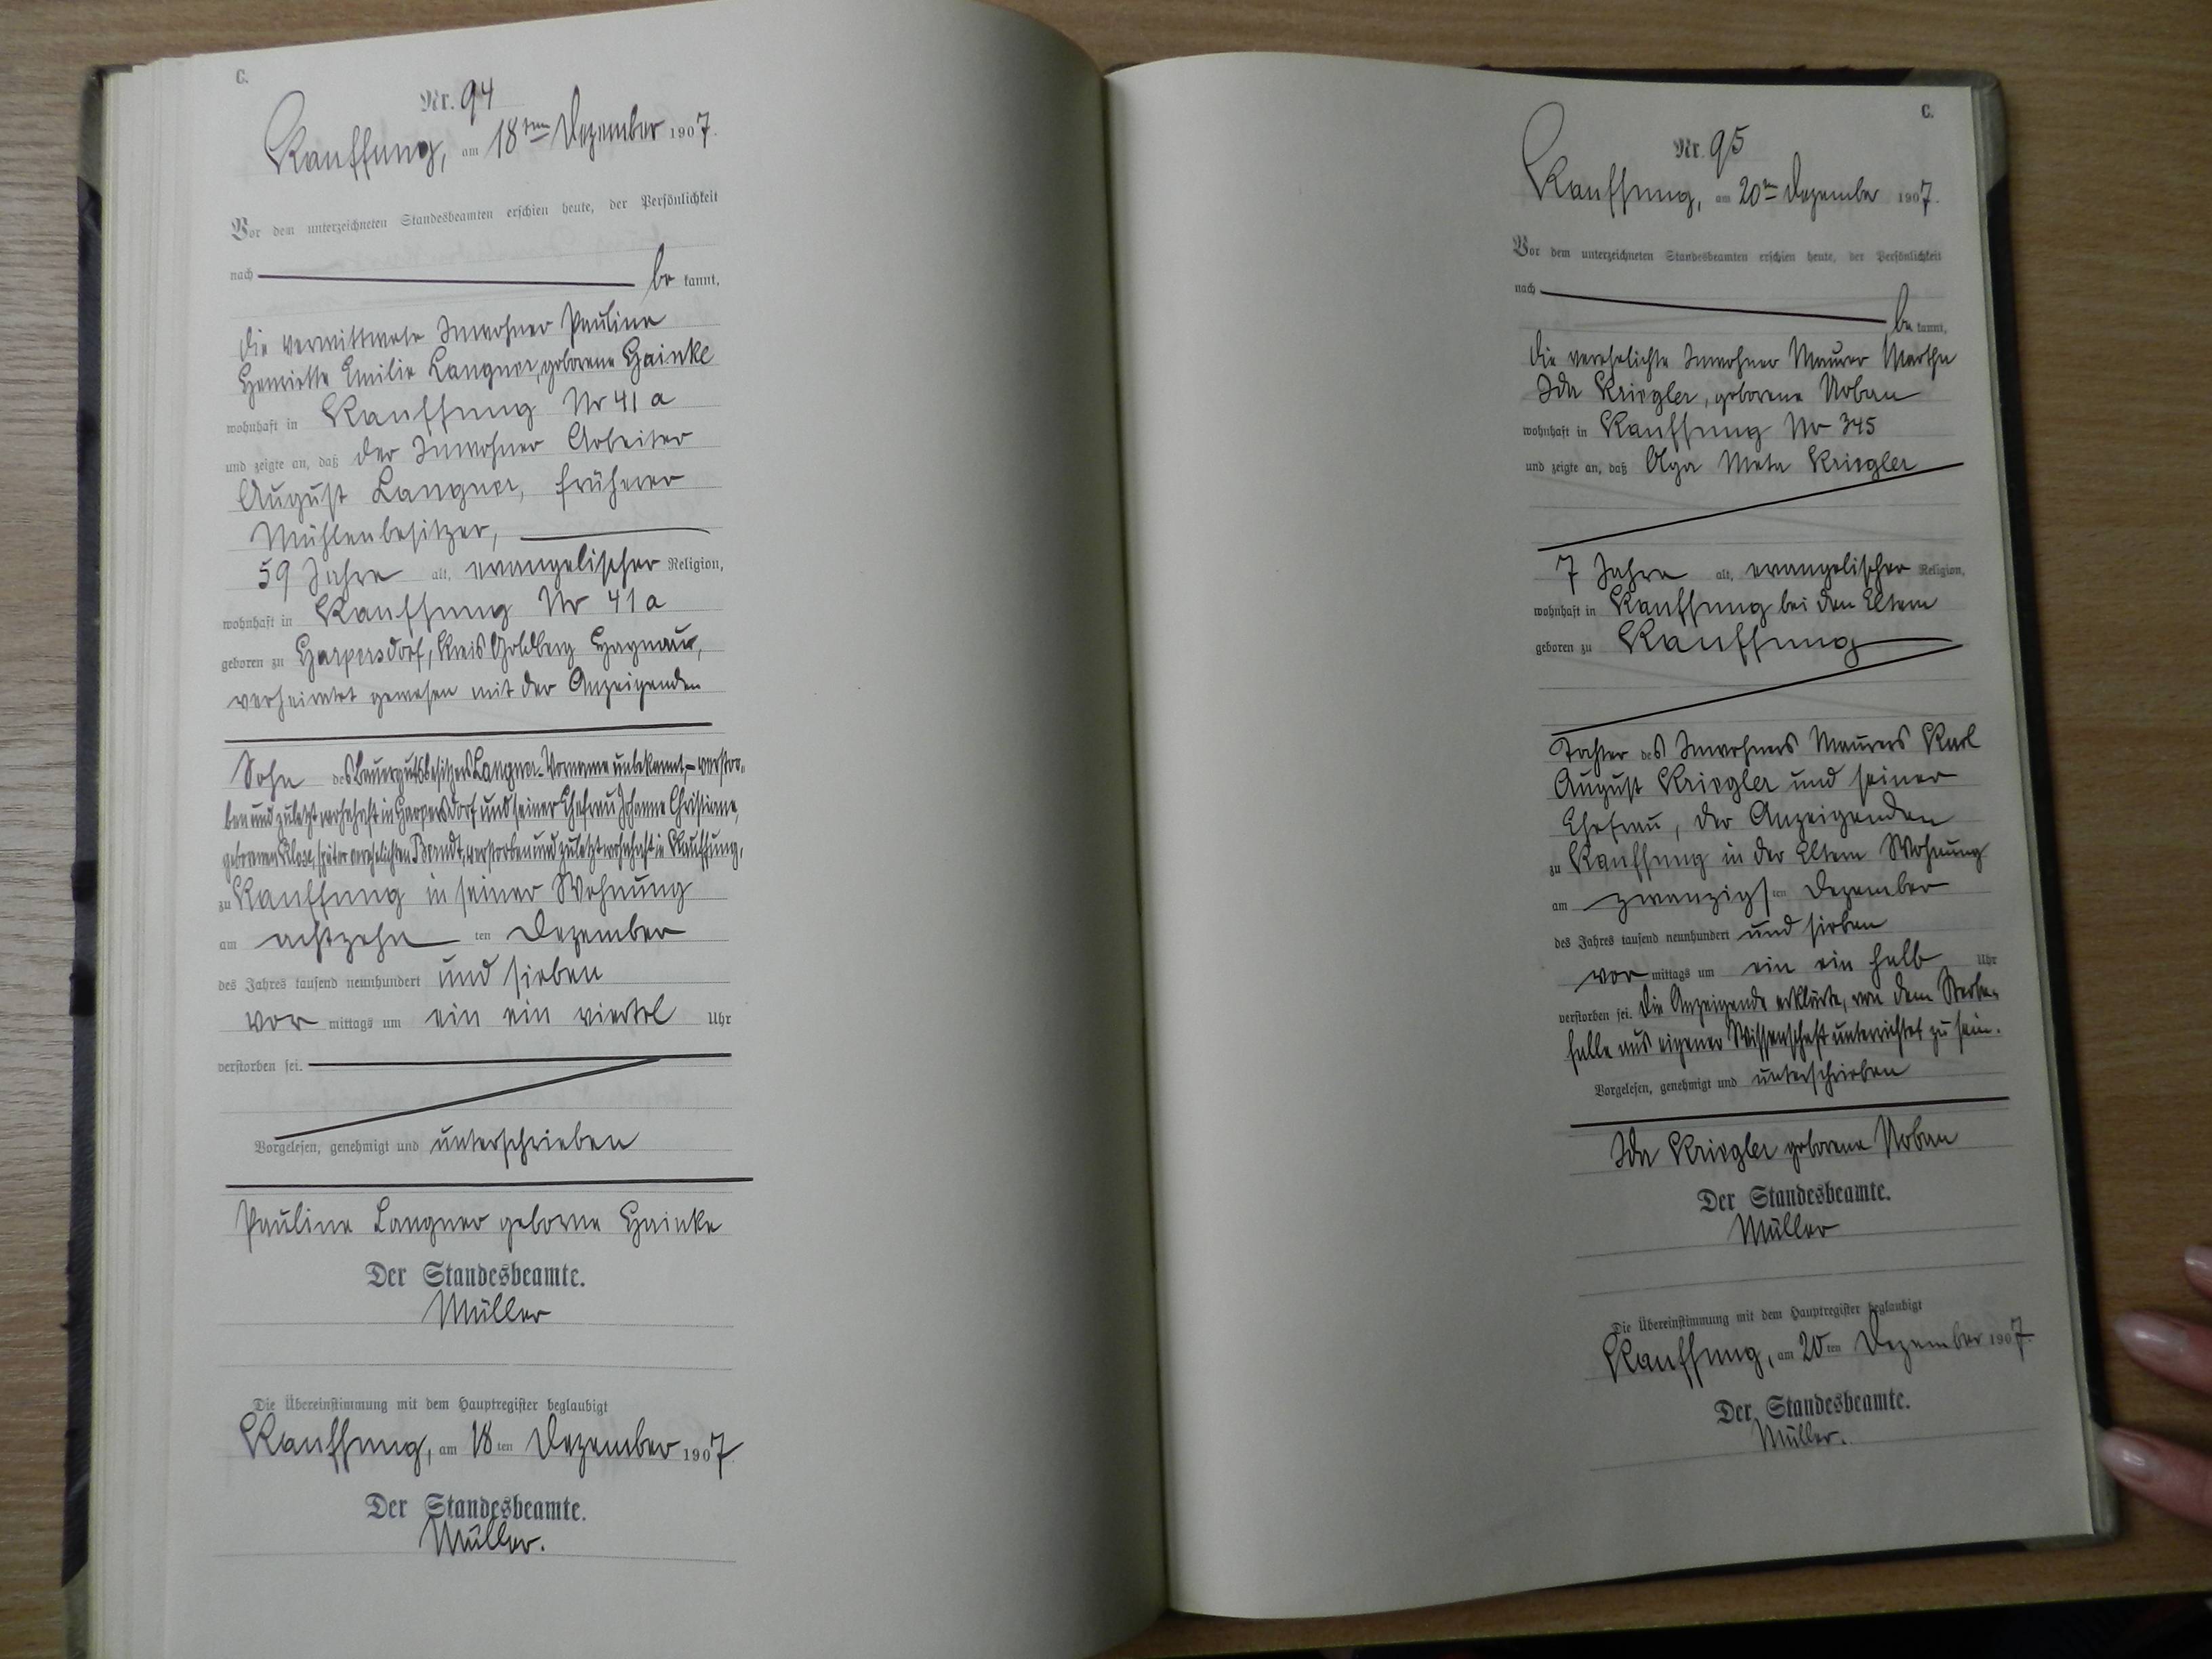 C.
Nr. 94
Kauffung, am 18ten Dezember 1907.
Vor dem unterzeichneten Standesbeamten erschien heute, der Persönlichkeit
nach be kannt,
die verwittwete Inwohner Pauline
Henriette Emilie Langner, geborene Hainke
wohnhaft in Kauffung Nr 41 a
und zeigte an, daß der Inwohner Arbeiter
August Langner, früherer
Mühlenbesitzer,
59 Jahre alt, evangelischer Religion,
wohnhaft in Kauffung Nr 41 a
geboren zu Harpersdorf, Kreis Goldberg Haynau,
verheiratet gewesen mit der Anzeigenden
Sohn des Bauergutsbesitzers Langner-Vorname unbekannt,- verstor-
ben und zuletzt wohnhaft in Harpersdorf und seiner Ehefrau Johanne Christiane,
geborenen Klose, später verehelichten Brendt, verstorben und zuletzt wohnhaft in Kauffung,
zu Kauffung in seiner Wohnung
am achtzehn ten Dezember
des Jahres tausend neunhundert und sieben
vor mittags um ein ein viertel Uhr
verstorben sei.
Vorgelesen, genehmigt und unterschrieben
Pauline Langner geborne Hainke
Der Standesbeamte.
Müller
Die Übereinstimmung mit dem Hauptregister beglaubigt
Kauffung, am 18 ten Dezember 1907.
Der Standesbeamte.
Müller.
C.
Nr. 95
Kauffung, am 20ten Dezember 1907.
Vor dem unterzeichneten Standesbeamten erschien heute, der Persönlichkeit
nach be kannt,
die verehelichte Inwohner Maurer Martha
Ida Kriegler, geborene Urban
wohnhaft in Kauffung Nr 345
und zeigte an, daß Olga Meta Kriegler
7 Jahre alt, evangelischer Religion,
wohnhaft in Kauffung bei den Eltern
geboren zu Kauffung
Tochter des Inwohners Maurers Karl
August Kriegler und seiner
Ehefrau, der Anzeigenden
zu Kauffung in der Eltern Wohnung
am zwanzigs ten Dezember
des Jahres tausend neunhundert und sieben
vor mittags um ein ein halb Uhr
verstorben sei. Die Anzeigende erklärte, von dem Sterbe-
falle aus eigener Wissenschaft unterrichtet zu sein.
Vorgelesen, genehmigt und unterschrieben
Ida Kriegler geborene Urban
Der Standesbeamte.
Müller
Die Übereinstimmung mit dem Hauptregister beglaubigt
Kauffung, am 20 ten Dezember 1907.
Der Standesbeamte.
Müller.